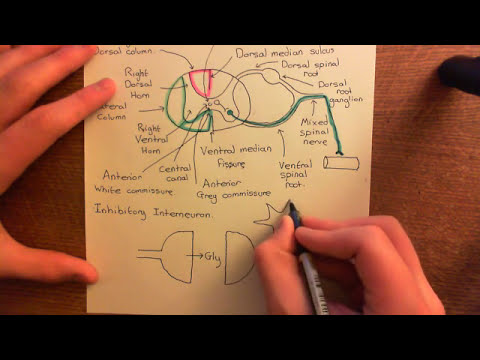 Dorsal column.
Dorsal median sulcus
Dorsal spinal root
Right Dorsal Horn
Dorsal root ganglion
Lateral Column
Mixed spinal nerve
Right Ventral Horn
Central canal
Ventral median fissure
Ventral spinal root.
Anterior White commissure
Anterior Grey commissure
Inhibitory Interneuron.
Gly